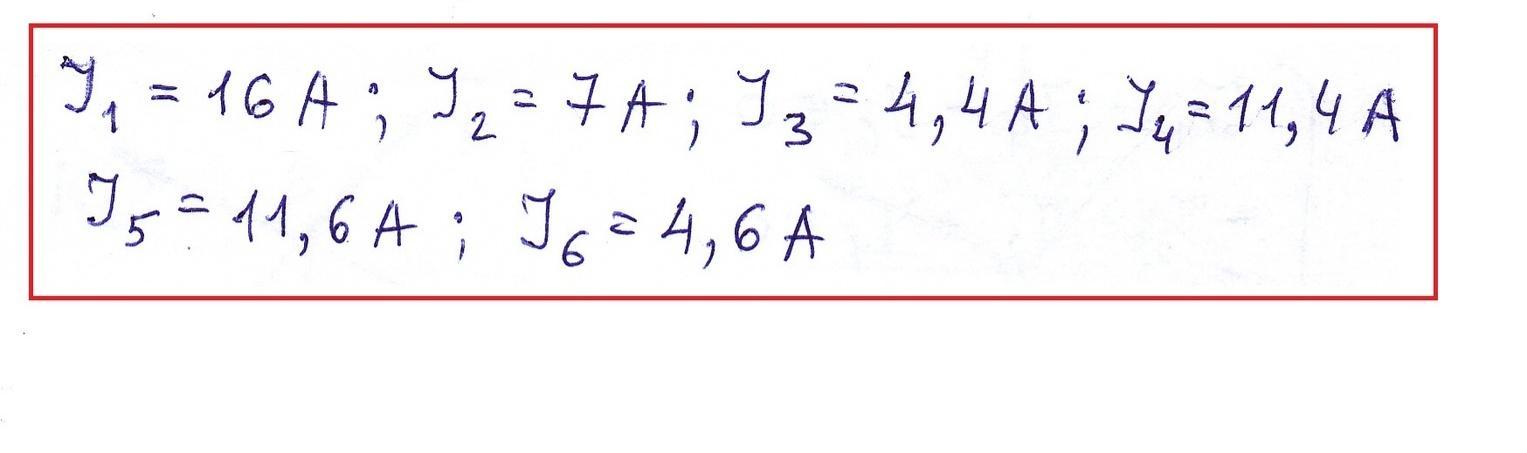 I₁ = 16 A ; I₂ = 7 A ; I₃ = 4,4 A ; I₄ = 11,4 A
I₅ = 11,6 A ; I₆ = 4,6 A